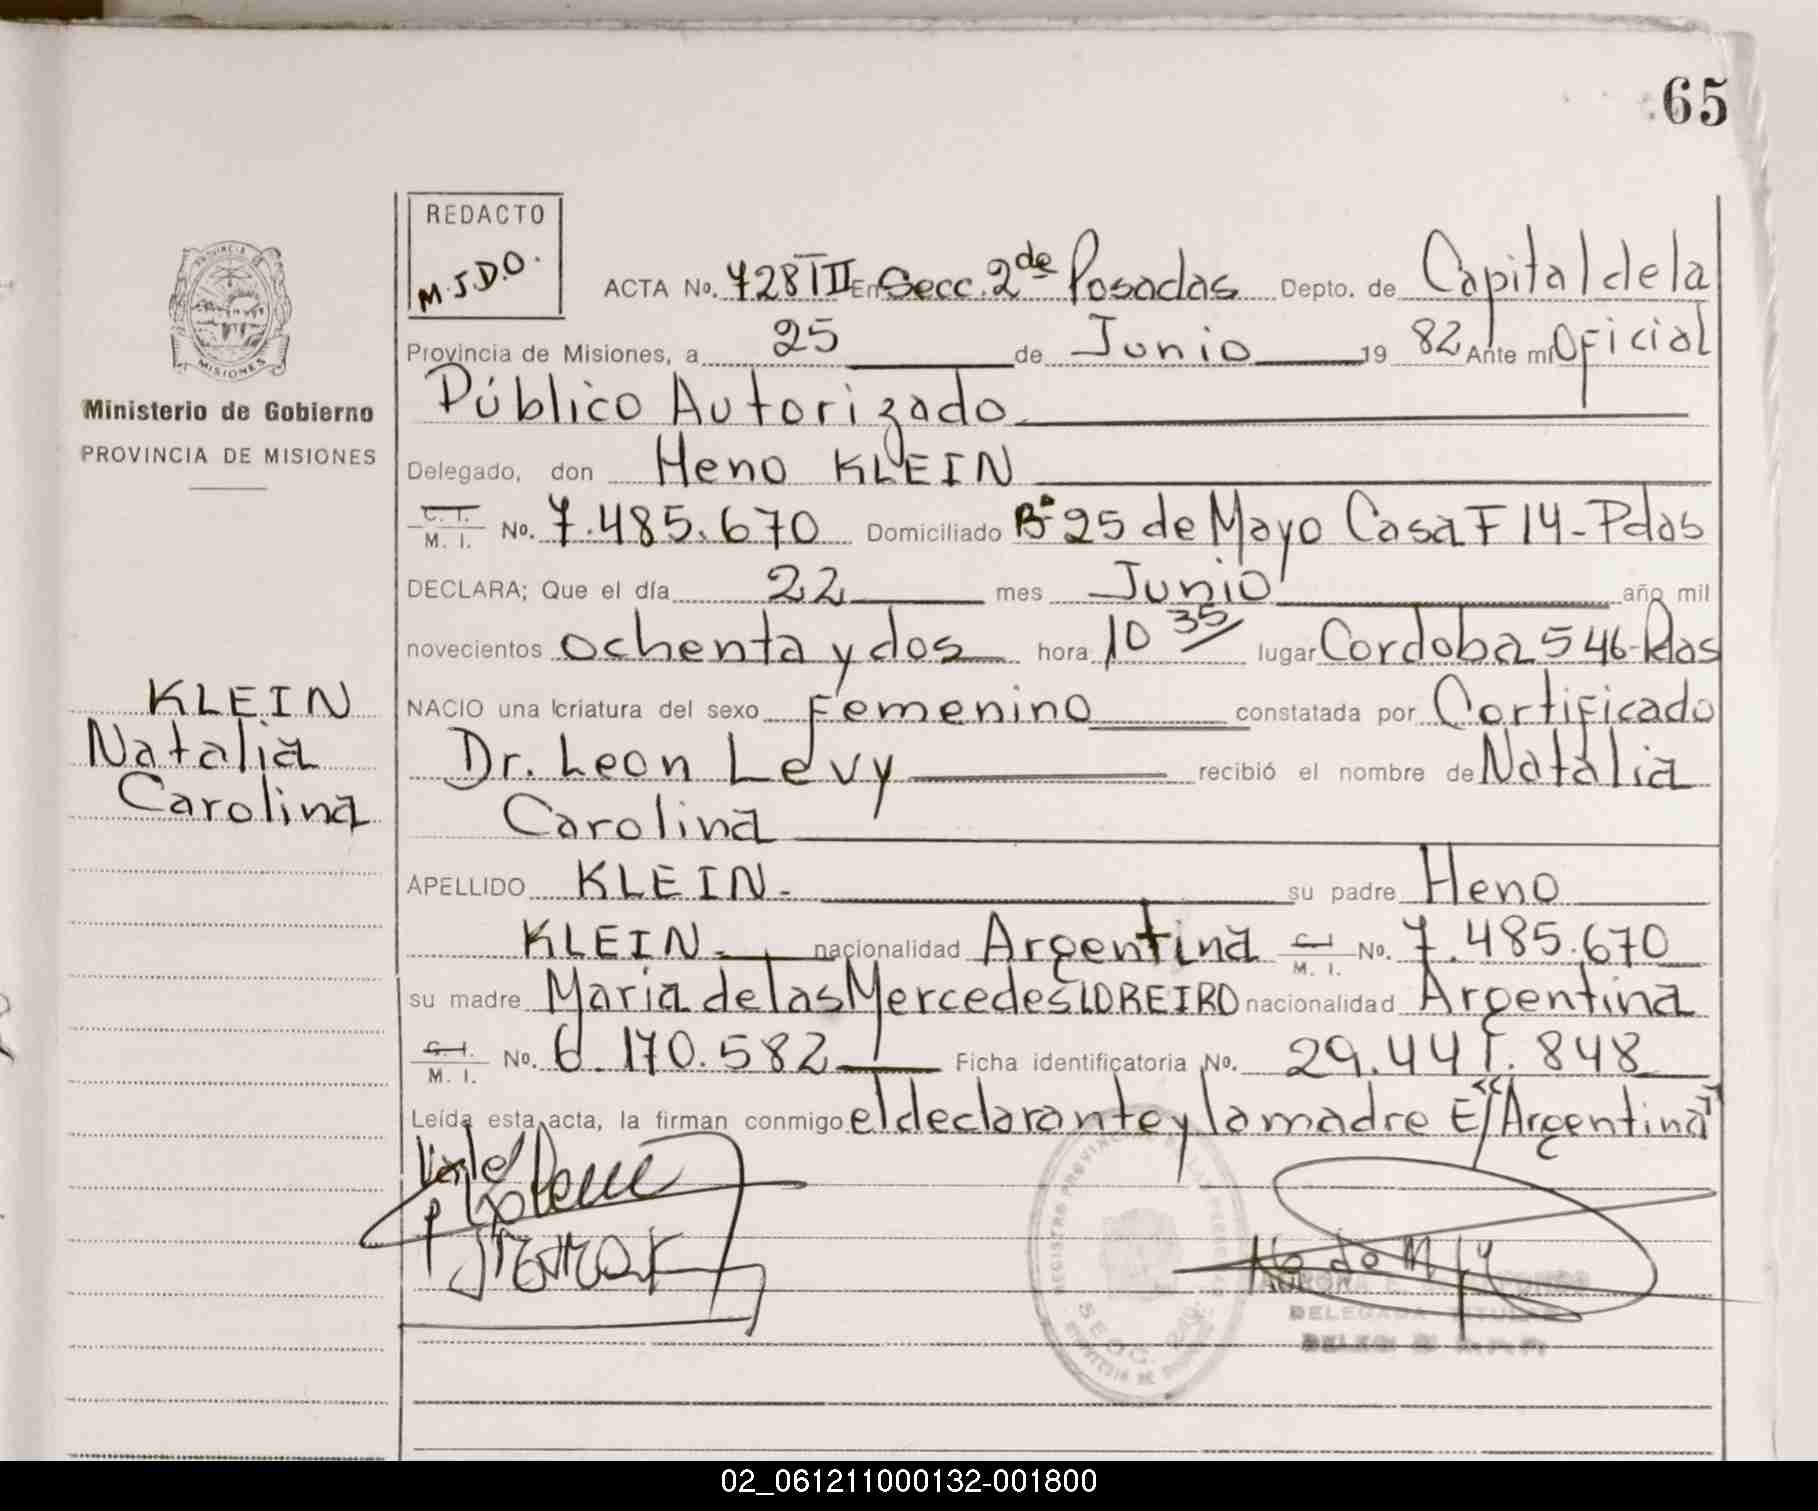 65
REDACTO
M.J.D.O.
ACTA No. 728 TIII En Secc. 2da de Posadas Depto. de Capital de la
Provincia de Misiones, a 25 de Junio 19 82 Ante mí Oficial
Público Autorizado
Delegado, don Heno KLEIN
C. I. M. I. No. 7.485.670 Domiciliado Bº 25 de Mayo Casa F 14 - Pdas
DECLARA; Que el día 22 mes Junio año mil
novecientos ochenta y dos hora 10 35 lugar Cordoba 546-Pdas
NACIO una criatura del sexo Femenino constatada por Certificado
Dr. Leon Levy recibió el nombre de Natalia
Carolina
APELLIDO KLEIN.- su padre Heno
KLEIN.- nacionalidad Argentina C. I. M. I. No. 7.485.670
su madre Maria de las Mercedes LOREIRO nacionalidad Argentina
C. I. M. I. No. 6.170.582 Ficha identificatoria No. 29.441.848
Leída esta acta, la firman conmigo el declarante y la madre E/"Argentina"
Vale
PROVINCIA DE
MISIONES
Ministerio de Gobierno
PROVINCIA DE MISIONES
KLEIN
Natalia
Carolina
REGISTRO PROVINCIAL DE LAS PERSONAS
SECC.
DELEGADA TITULAR
02_061211000132-001800